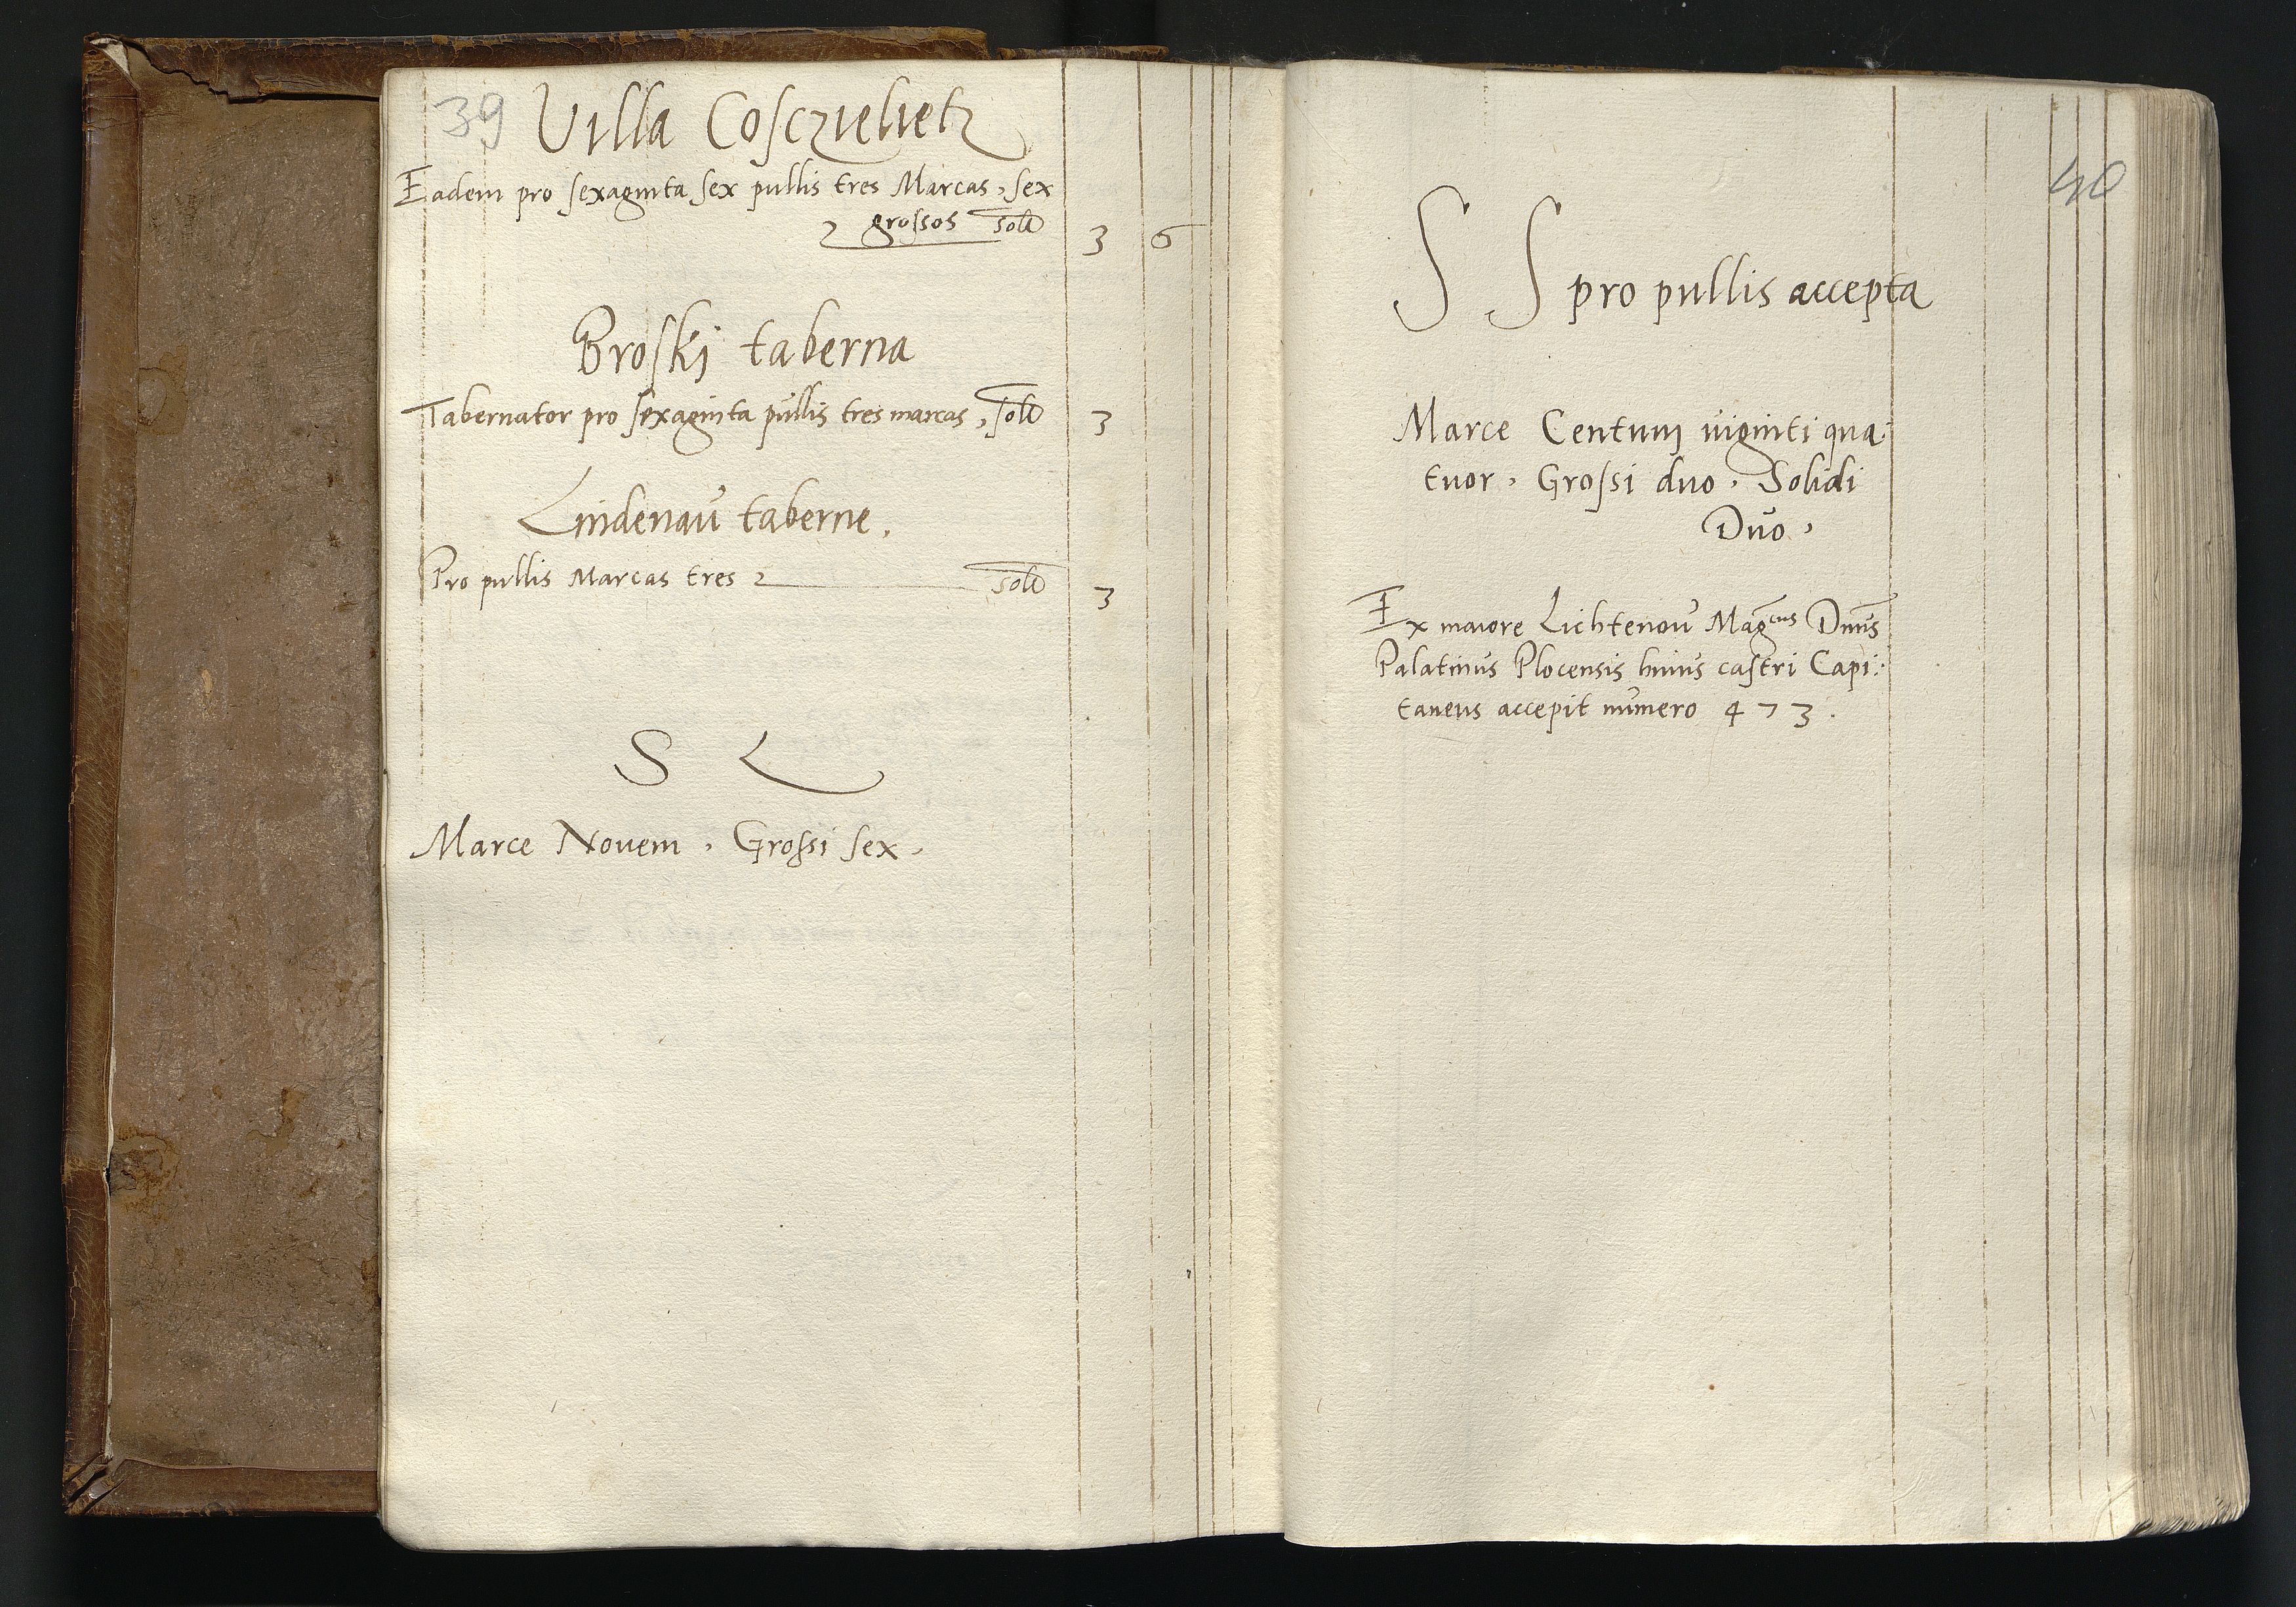 39 Villa Cosczielietz
Eadem pro sexaginta sex pullis tres Marcas, sex
grossos
3 6
Broskj taberna
Tabernator pro sexaginta pullis tres marcas,
3
Lindenaú taberne.
Pro pullis Marcas tres
3
S L
Marce Novem, Grossi sex.
40
S S pro pullis accepta
Marce Centum uiginti qua:
tuor, Grossi duo, Solidi
Dúo,
Ex maiore Lichtenoú Mag:cus Dnús
Palatinús Plocensis huiús castri Capi:
taneus accepit número 473.